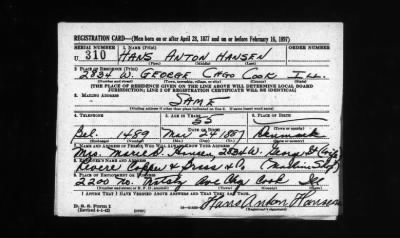 REGISTRATION CARD—(Men born on or after April 28, 1877 and on or before February 16, 1897)
SERIAL NUMBER 1. NAME (Print) ORDER NUMBER
U 310 HANS ANTON HANSEN
(First) (Middle) (Last)
2. PLACE OF RESIDENCE (Print)
2834 W. GEORGE CHGO COOK ILL.
(Number and street) (Town, township, village, or city) (County) (State)
[THE PLACE OF RESIDENCE GIVEN ON THE LINE ABOVE WILL DETERMINE LOCAL BOARD
JURISDICTION; LINE 2 OF REGISTRATION CERTIFICATE WILL BE IDENTICAL]
3. MAILING ADDRESS
SAME
[Mailing address if other than place indicated on line 2. If same insert word same]
4. TELEPHONE 5. AGE IN YEARS 6. PLACE OF BIRTH
55
DATE OF BIRTH (Town or county)
Bel. 1489 Mar 24 1887 Denmark
(Exchange) (Number) (Mo.) (Day) (Yr.) (State or country)
7. NAME AND ADDRESS OF PERSON WHO WILL ALWAYS KNOW YOUR ADDRESS
Mrs. Hansen, 2834 W. George St
8. EMPLOYER'S NAME AND ADDRESS
Revere Copper & Brass
9. PLACE OF EMPLOYMENT OR BUSINESS
2200 No. Ave Chgo Cook Ill
(Number and street or R. F. D. number) (Town) (County) (State)
I AFFIRM THAT I HAVE VERIFIED ABOVE ANSWERS AND THAT THEY ARE TRUE.
D. S. S. Form 1
(Revised 4-1-42)
Hans Anton Hansen